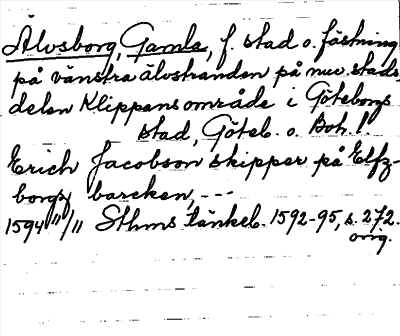 Älvsborg, Gamla, f. stad o. fästning
på vänstra älvstranden på nuv. stads-
delen Klippans område i Göteborgs
stad, Göteb. o. Boh. l.
Erich Jacobson skipper på Elfz-
borgz barcken, ---
1594 11/11 Sthms tänkeb. 1592-95, s. 272.
orig.